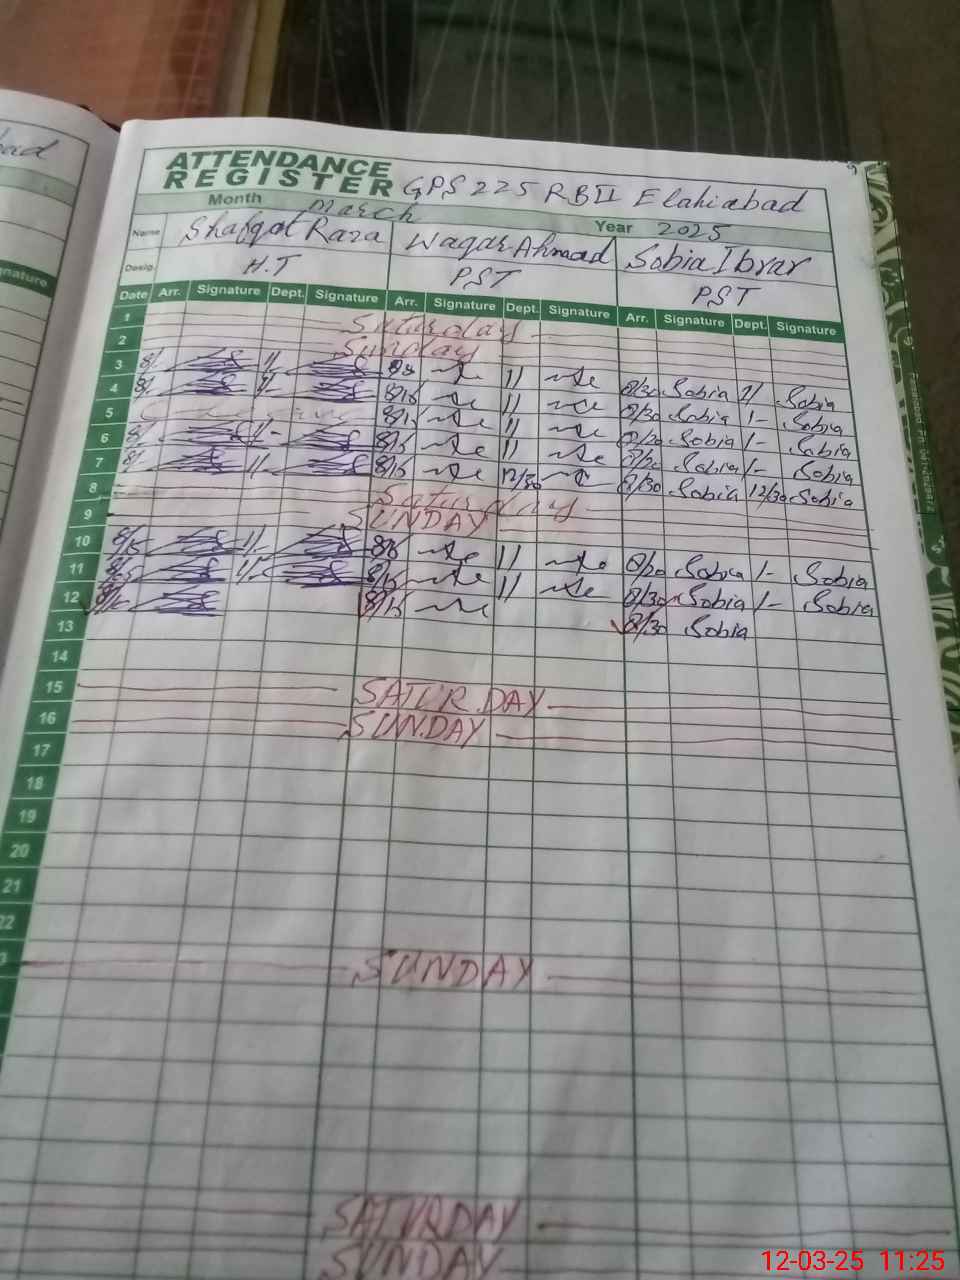 ad
ATTENDANCE
REGISTER GPS 225 RBII Elahiabad
Month March Year 2025
Name Shafqat Raza Waqar Ahmad Sobia Ibrar
Desig. H.T PST PST
Signature
Date Arr. Signature Dept. Signature Arr. Signature Dept. Signature Arr. Signature Dept. Signature
1 Saturday
2 Sunday
3 8/. 1/. 11 8/30 Sobia 1/ Sobia
4 8/. 1/- 8/15 11 8/30 Sobia 1/- Sobia
5 8/15 11 8/30 Sobia 1/- Sobia
6 8/. 1/- 8/15 11 8/30 Sobia 1/- Sobia
7 8/. 1/. 8/15 12/30 8/30 Sobia 12/30 Sobia
8 Saturday
9 SUNDAY
10 8/15 1/. 11 8/30 Sobia 1- Sobia
11 8/15 1/- 8/15 11 8/30 Sobia 1- Sobia
12 8/15 8/15 8/30 Sobia
13
14
15 SATUR.DAY
16 SUN.DAY
17
18
19
20
21
22
3 SUNDAY
SATURDAY
SUNDAY
12-03-25 11:25